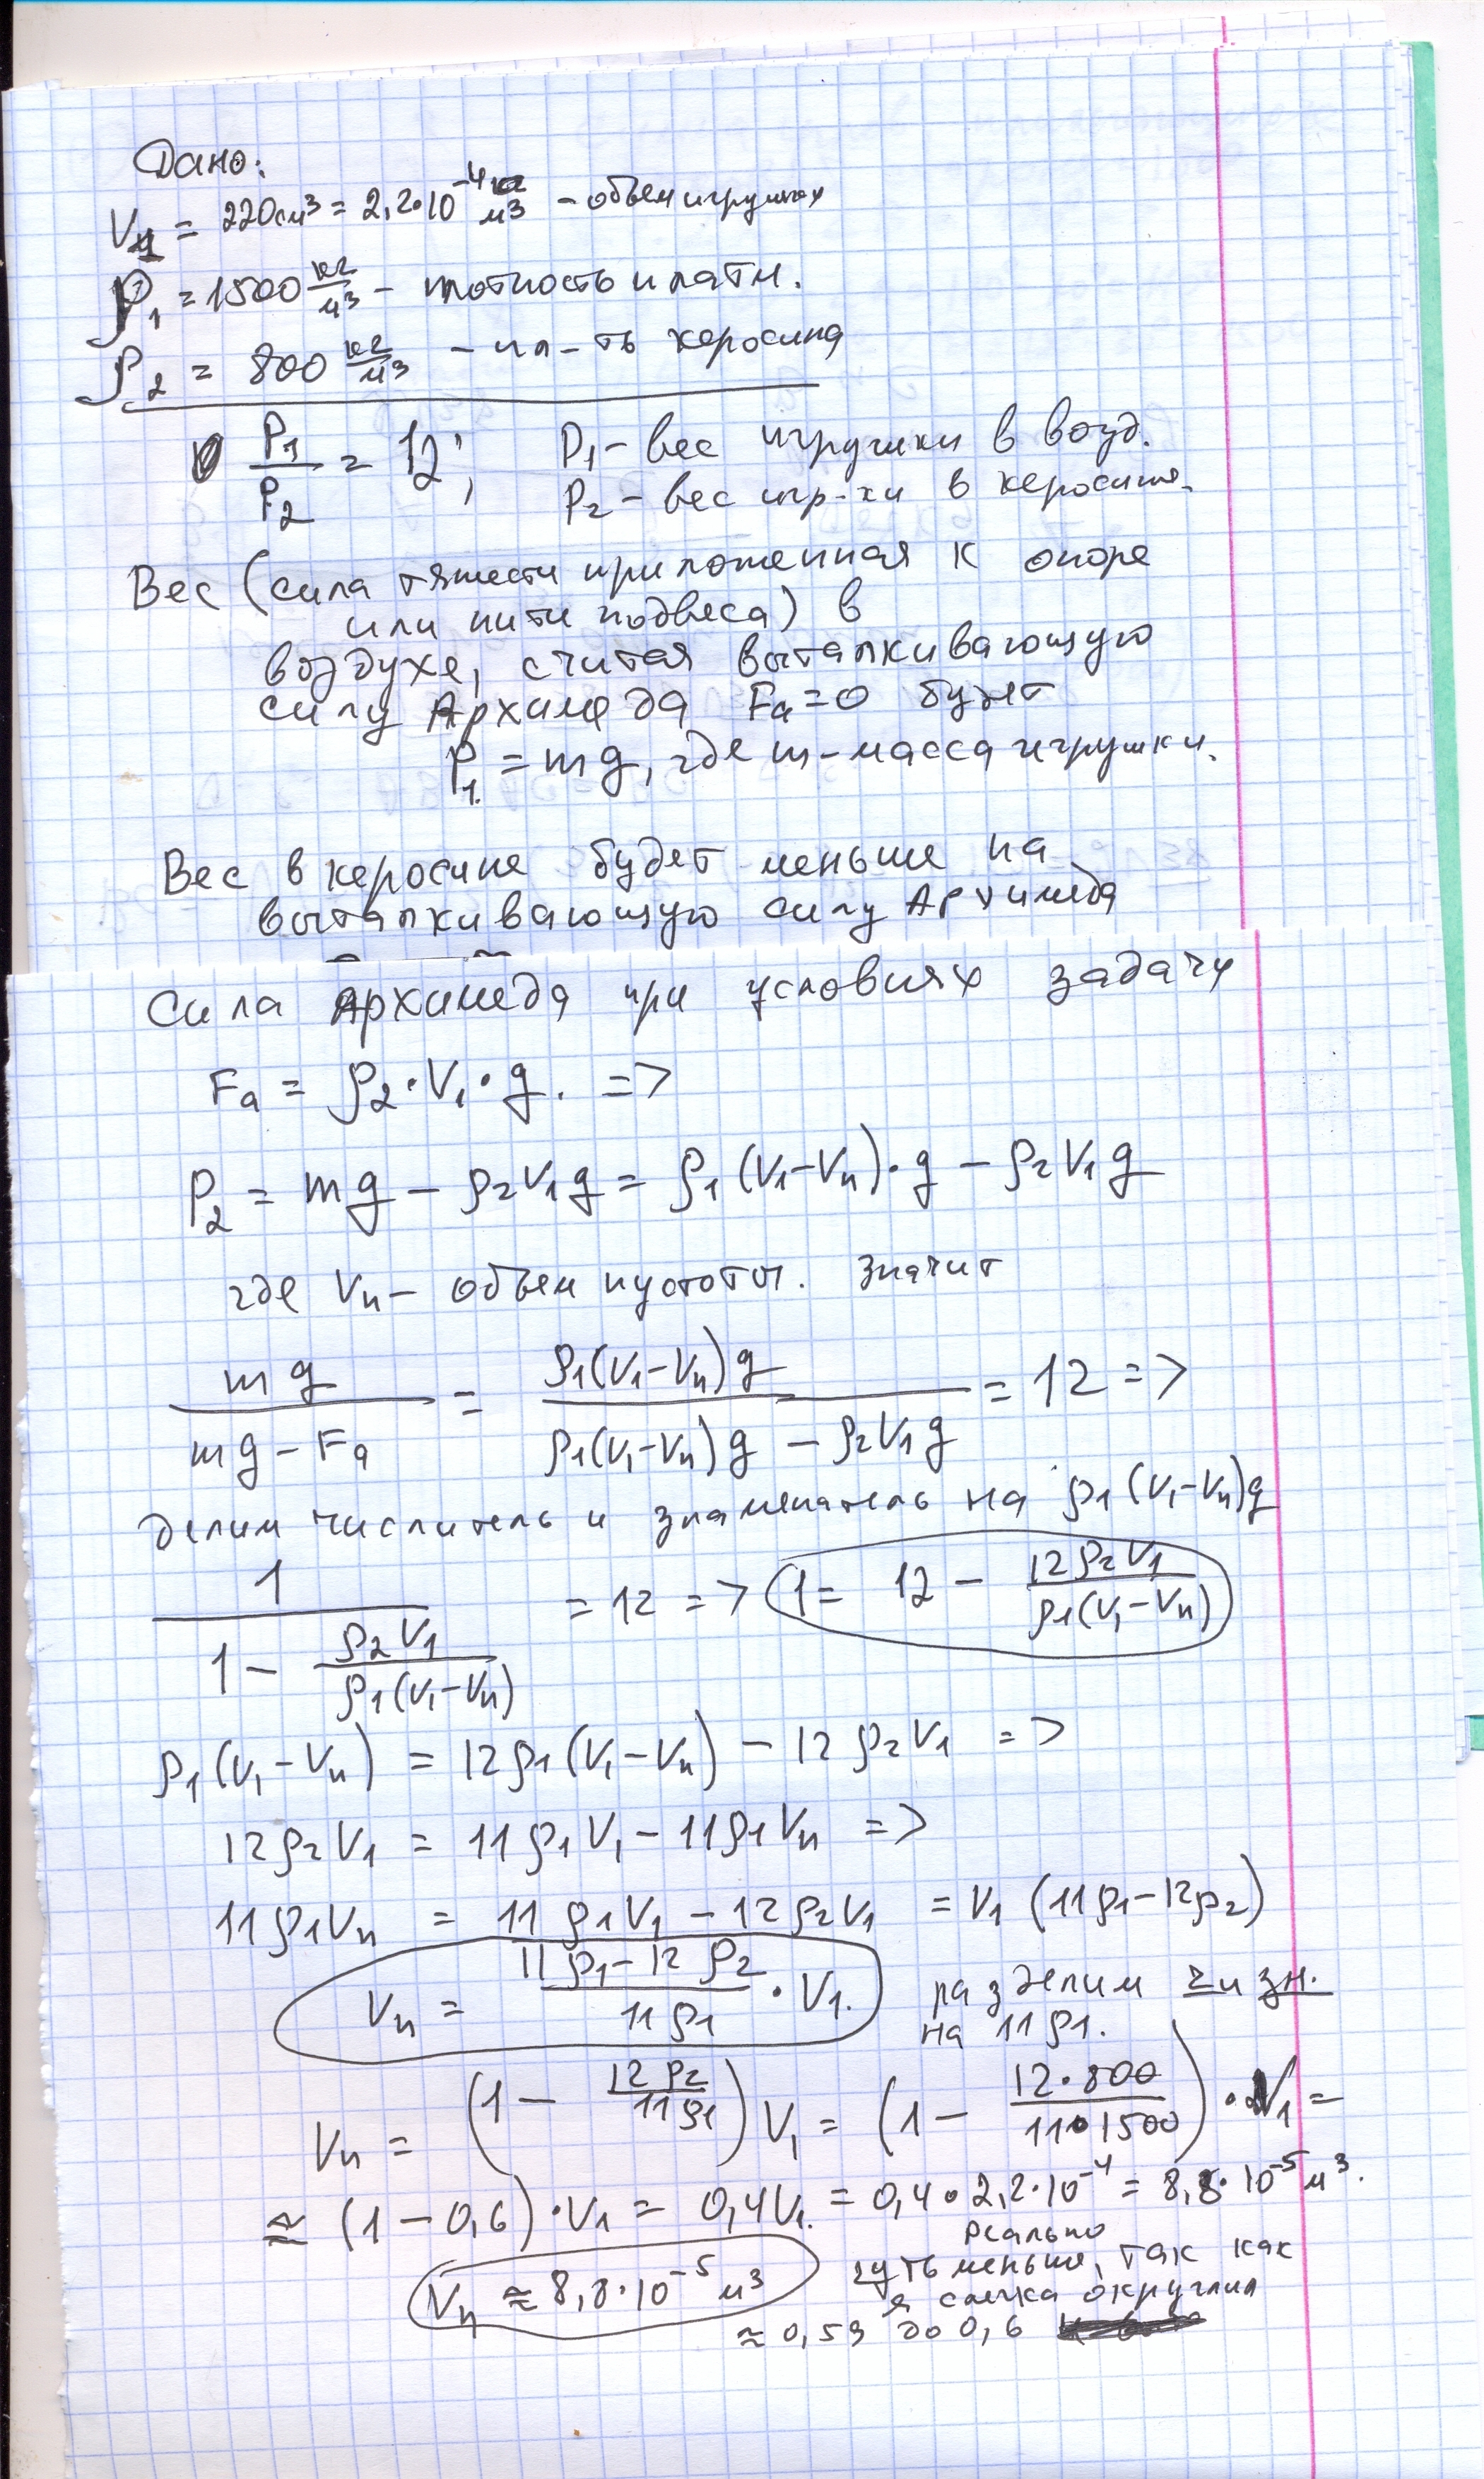 Дано:
V1 = 220см³ = 2,2·10⁻⁴ м³ – объем игрушки
ρ1 = 1500 кг/м³ – плотность пластм.
ρ2 = 800 кг/м³ – пл-ть керосина
P1/P2 = 12; P1 – вес игрушки в возд.
P2 – вес игр-ки в керосине.
Вес (сила тяжести приложенная к опоре
или нити подвеса) в
воздухе, считая выталкивающую
силу Архимеда Fa=0 будет
P1 = mg, где m – масса игрушки.
Вес в керосине будет меньше на
выталкивающую силу Архимеда
Сила Архимеда при условиях задачи
Fa = ρ2·V1·g. =>
P2 = mg – ρ2V1g = ρ1(V1–Vп)·g – ρ2V1g
где Vп – объем пустоты. Значит
mg/(mg – Fa) = ρ1(V1–Vп)g/(ρ1(V1–Vп)g – ρ2V1g) = 12 =>
делим числитель и знаменатель на ρ1(V1–Vп)g
1/(1 – ρ2V1/(ρ1(V1–Vп))) = 12 => 1 = 12 – 12ρ2V1/(ρ1(V1–Vп))
ρ1(V1–Vп) = 12ρ1(V1–Vп) – 12ρ2V1 =>
12ρ2V1 = 11ρ1V1 – 11ρ1Vп =>
11ρ1Vп = 11ρ1V1 – 12ρ2V1 = V1(11ρ1–12ρ2)
Vп = (11ρ1–12ρ2)/(11ρ1) · V1. разделим ч и зн.
на 11ρ1.
Vп = (1 – 12ρ2/11ρ1)V1 = (1 – 12·800/11·1500)·V1 =
≈ (1–0,6)·V1 = 0,4V1. = 0,4·2,2·10⁻⁴ = 8,8·10⁻⁵ м³.
Vп ≈ 8,8·10⁻⁵ м³ реально
чуть меньше, так как
я слегка округлил
≈ 0,53 до 0,6